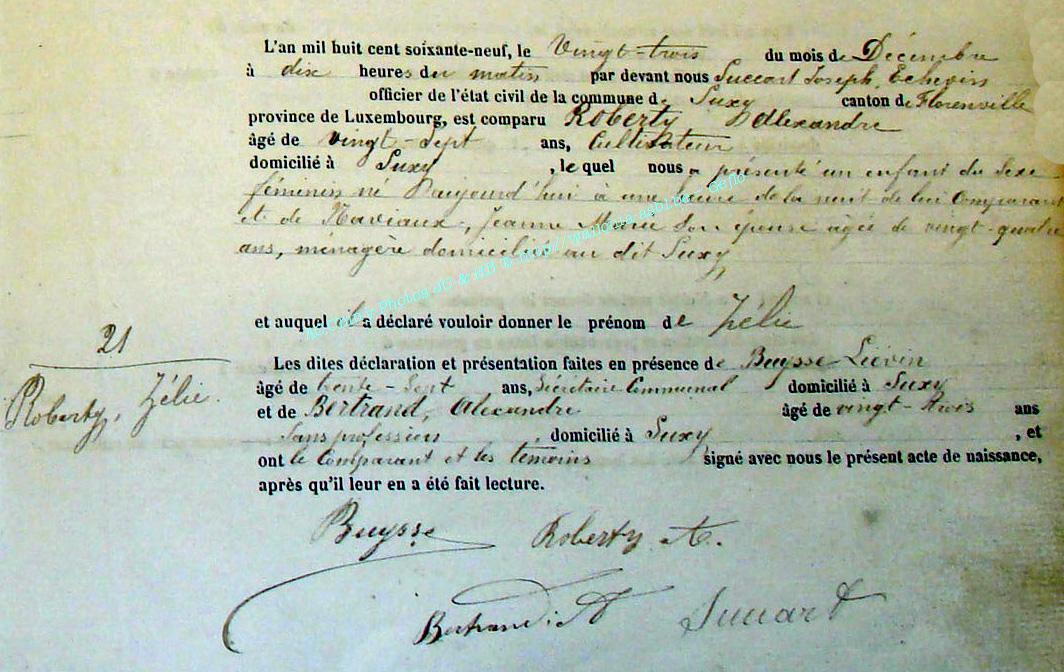 L'an mil huit cent soixante-neuf, le Vingt-trois du mois de Décembre
à dix heures du matin par devant nous Succart Joseph, Echevin
officier de l'état civil de la commune de Suxy canton de Florenville
province de Luxembourg, est comparu Roberty Alexandre
âgé de vingt-sept ans, Cultivateur
domicilié à Suxy, le quel nous a présenté un enfant du sexe
féminin né Daujourd'hui à une heure de la nuit de lui Comparant
et de Naviaux, Jeanne Marie Son épouse agée de vingt-quatre
ans, ménagère domiciliée au dit Suxy
et auquel il a déclaré vouloir donner le prénom de Zelie
21
Roberty, Zélie.
Les dites déclaration et présentation faites en présence de Buysse Liévin
âgé de trente-Sept ans, Secrétaire Communal domicilié à Suxy
et de Bertrand, Alexandre âgé de vingt-trois ans
Sans profession, domicilié à Suxy, et
ont le Comparant et les temoins signé avec nous le présent acte de naissance,
après qu'il leur en a été fait lecture.
Buysse Roberty A.
Bertrand A Succart